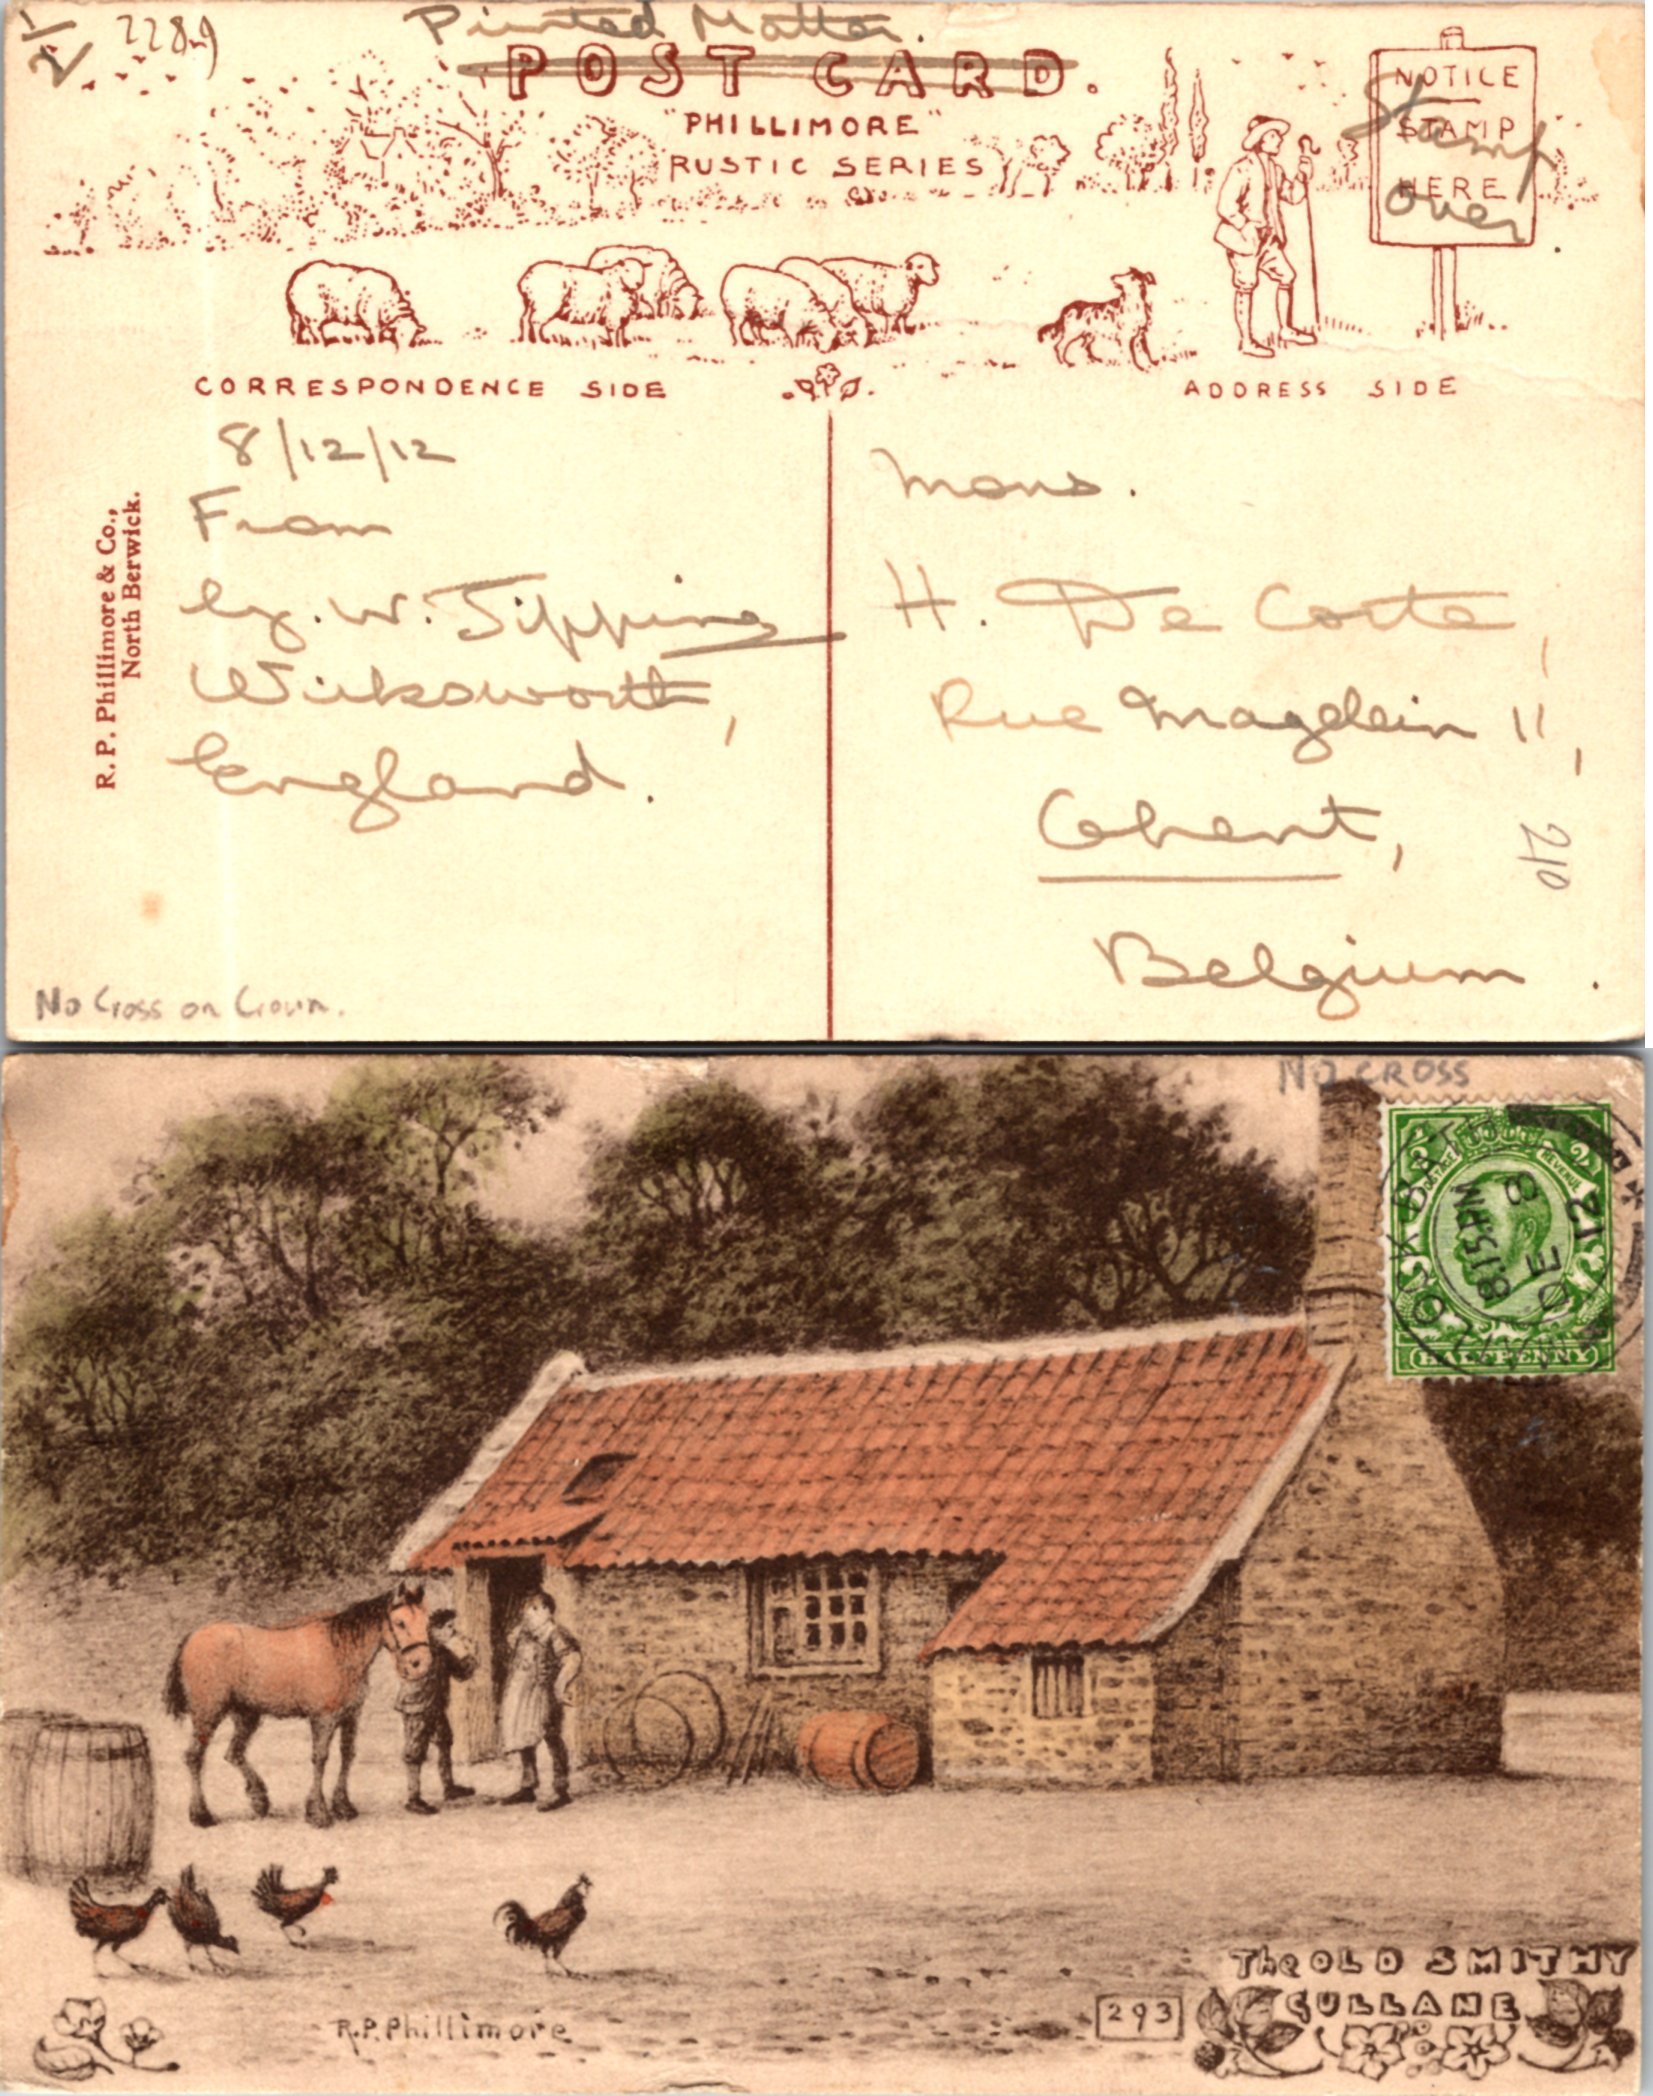 1/2
2289
Printed Matter.
POST CARD.
"PHILLIMORE"
RUSTIC SERIES
NOTICE
STAMP
HERE
Stamp
over
CORRESPONDENCE SIDE
ADDRESS SIDE
R. P. Phillimore & Co.,
North Berwick.
8/12/12
From
W. Tipping
Wirksworth,
England.
Mons.
H. De Corte,
Rue Magdlein 11,
Ghent,
Belgium.
210
No Cross on Crown.
NO CROSS
POSTAGE REVENUE
8.15 PM
DE 8
12
HALFPENNY
The OLD SMITHY
GULLANE
293
R.P. Phillimore